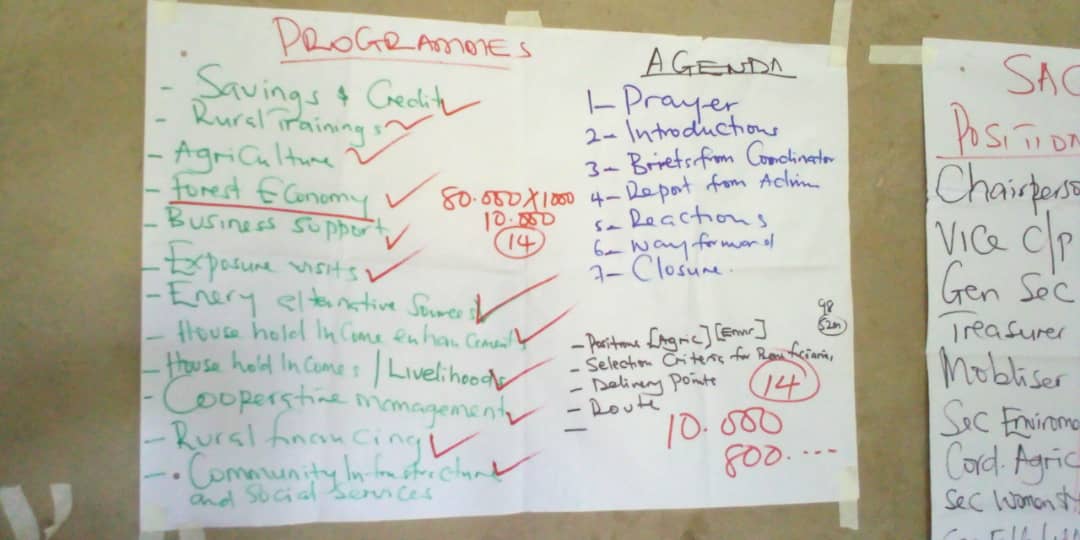 PROGRAMMES
- Savings & Credit
- Rural Trainings
- Agriculture
- Forest Economy
- Business support
- Exposure visits
- Enery alternative Sources
- House hold Income enhancements
- House hold Incomes / Livelihoods
- Cooperative management
- Rural financing
- Community Infrastructure
and Social Services
80.000 X 1000
10.000
14
AGENDA
1- Prayer
2- Introductions
3- Briefs from Coordinator
4- Report from Admin
5- Reactions
6- Way forward
7- Closure.
98
52m
- Positions [Agric] [Envr]
- Selection Criteria for
- Delivery points
- Route
-
14
10.000
800. ....
SAC
POSITION
Chairperso
Vice C/P
Gen Sec
Treasurer
Mobliser
Sec Enviromo
Cord. Agric
Sec Women